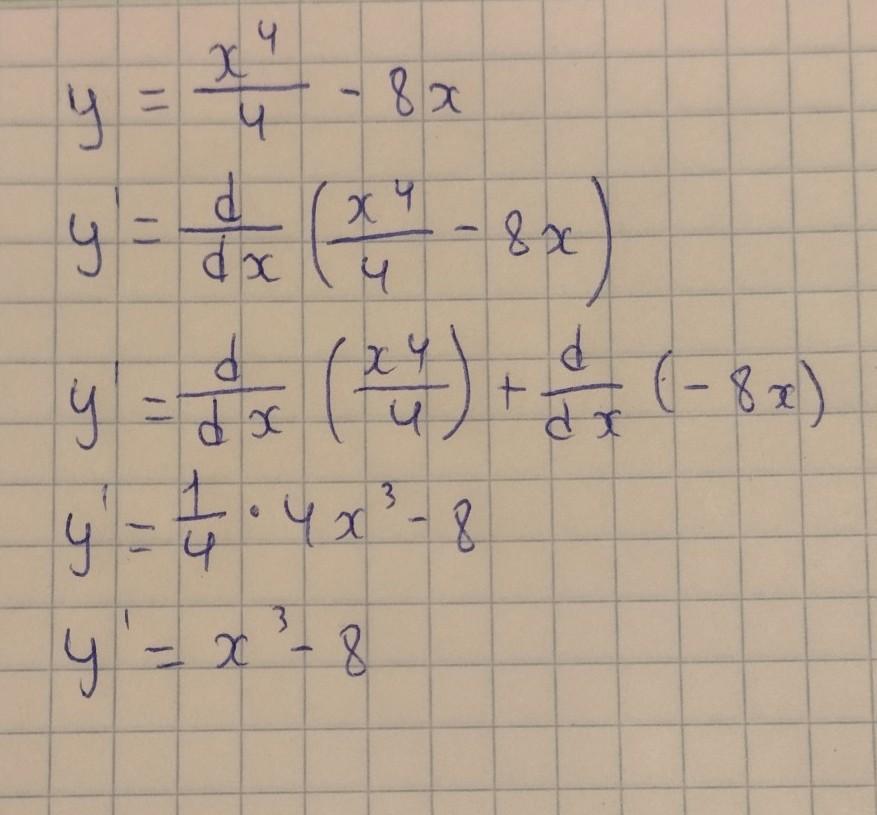 y = x⁴/4 - 8x
y' = d/dx (x⁴/4 - 8x)
y' = d/dx (x⁴/4) + d/dx (-8x)
y' = 1/4 · 4x³ - 8
y' = x³ - 8